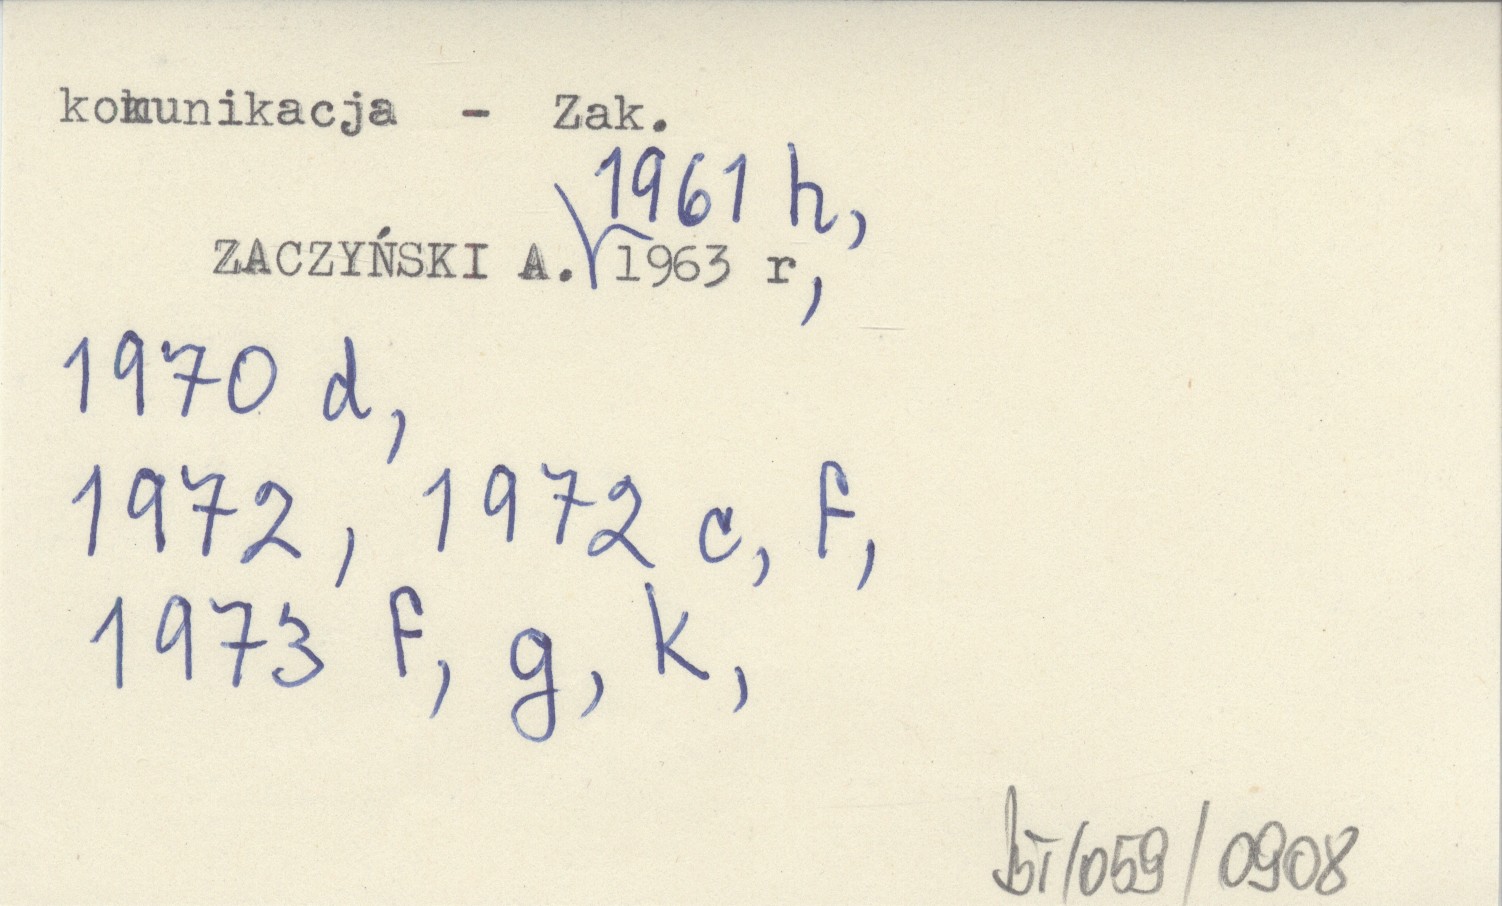 komunikacja - Zak.
1961 h,
ZACZYŃSKI A. 1963 r,
1970 d,
1972, 1972 c, f,
1973 f, g, k,
bt/059/0908